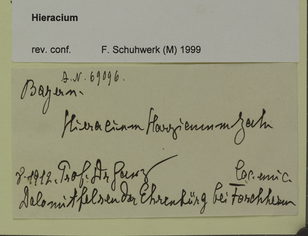 Hieracium
rev. conf. F. Schuhwerk (M) 1999
A.N. 69096.
Bayern.
Hieracium Harzianum Zahn
1912. Prof. Dr Harz
Dolomitfelsen der Ehrenbürg bei Forchheim